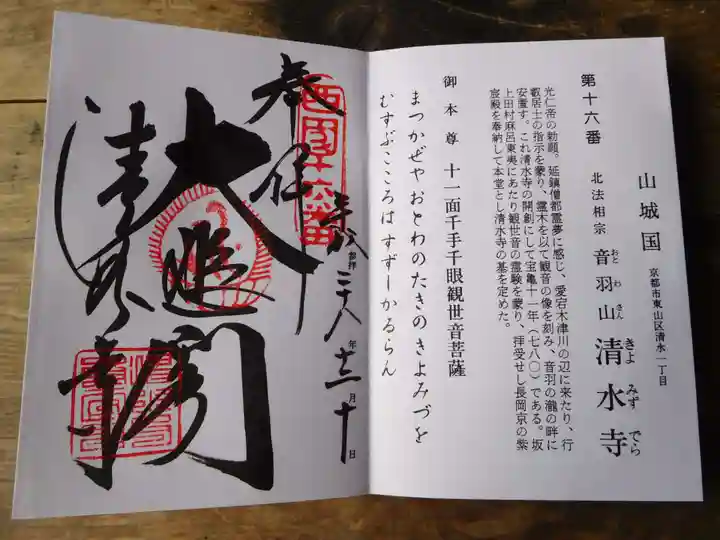 山城国
京都市東山区清水一丁目
第十六番
北法相宗
音羽山清水寺
おとわさん
きよみずでら
光仁帝の勅願。延鎮僧都霊夢に感じ、愛宕木津川の辺に来たり、行
叡居士の指示を蒙り、霊木を以て観音の像を刻み、音羽の瀧の畔に
安置す。これ清水寺の開創にして宝亀十一年（七八〇）である。坂
上田村麻呂東夷にあたり観世音の霊験を蒙り、拝受せし長岡京の紫
宸殿を奉納して本堂とし清水寺の基を定めた。
御本尊
十一面千手千眼観世音菩薩
まつかぜや おとわのたきの きよみづを
むすぶこころは すずーかるらん
奉拝
西国十六番
平成
参拝
二十八年十二月十日
大悲閣
清水寺